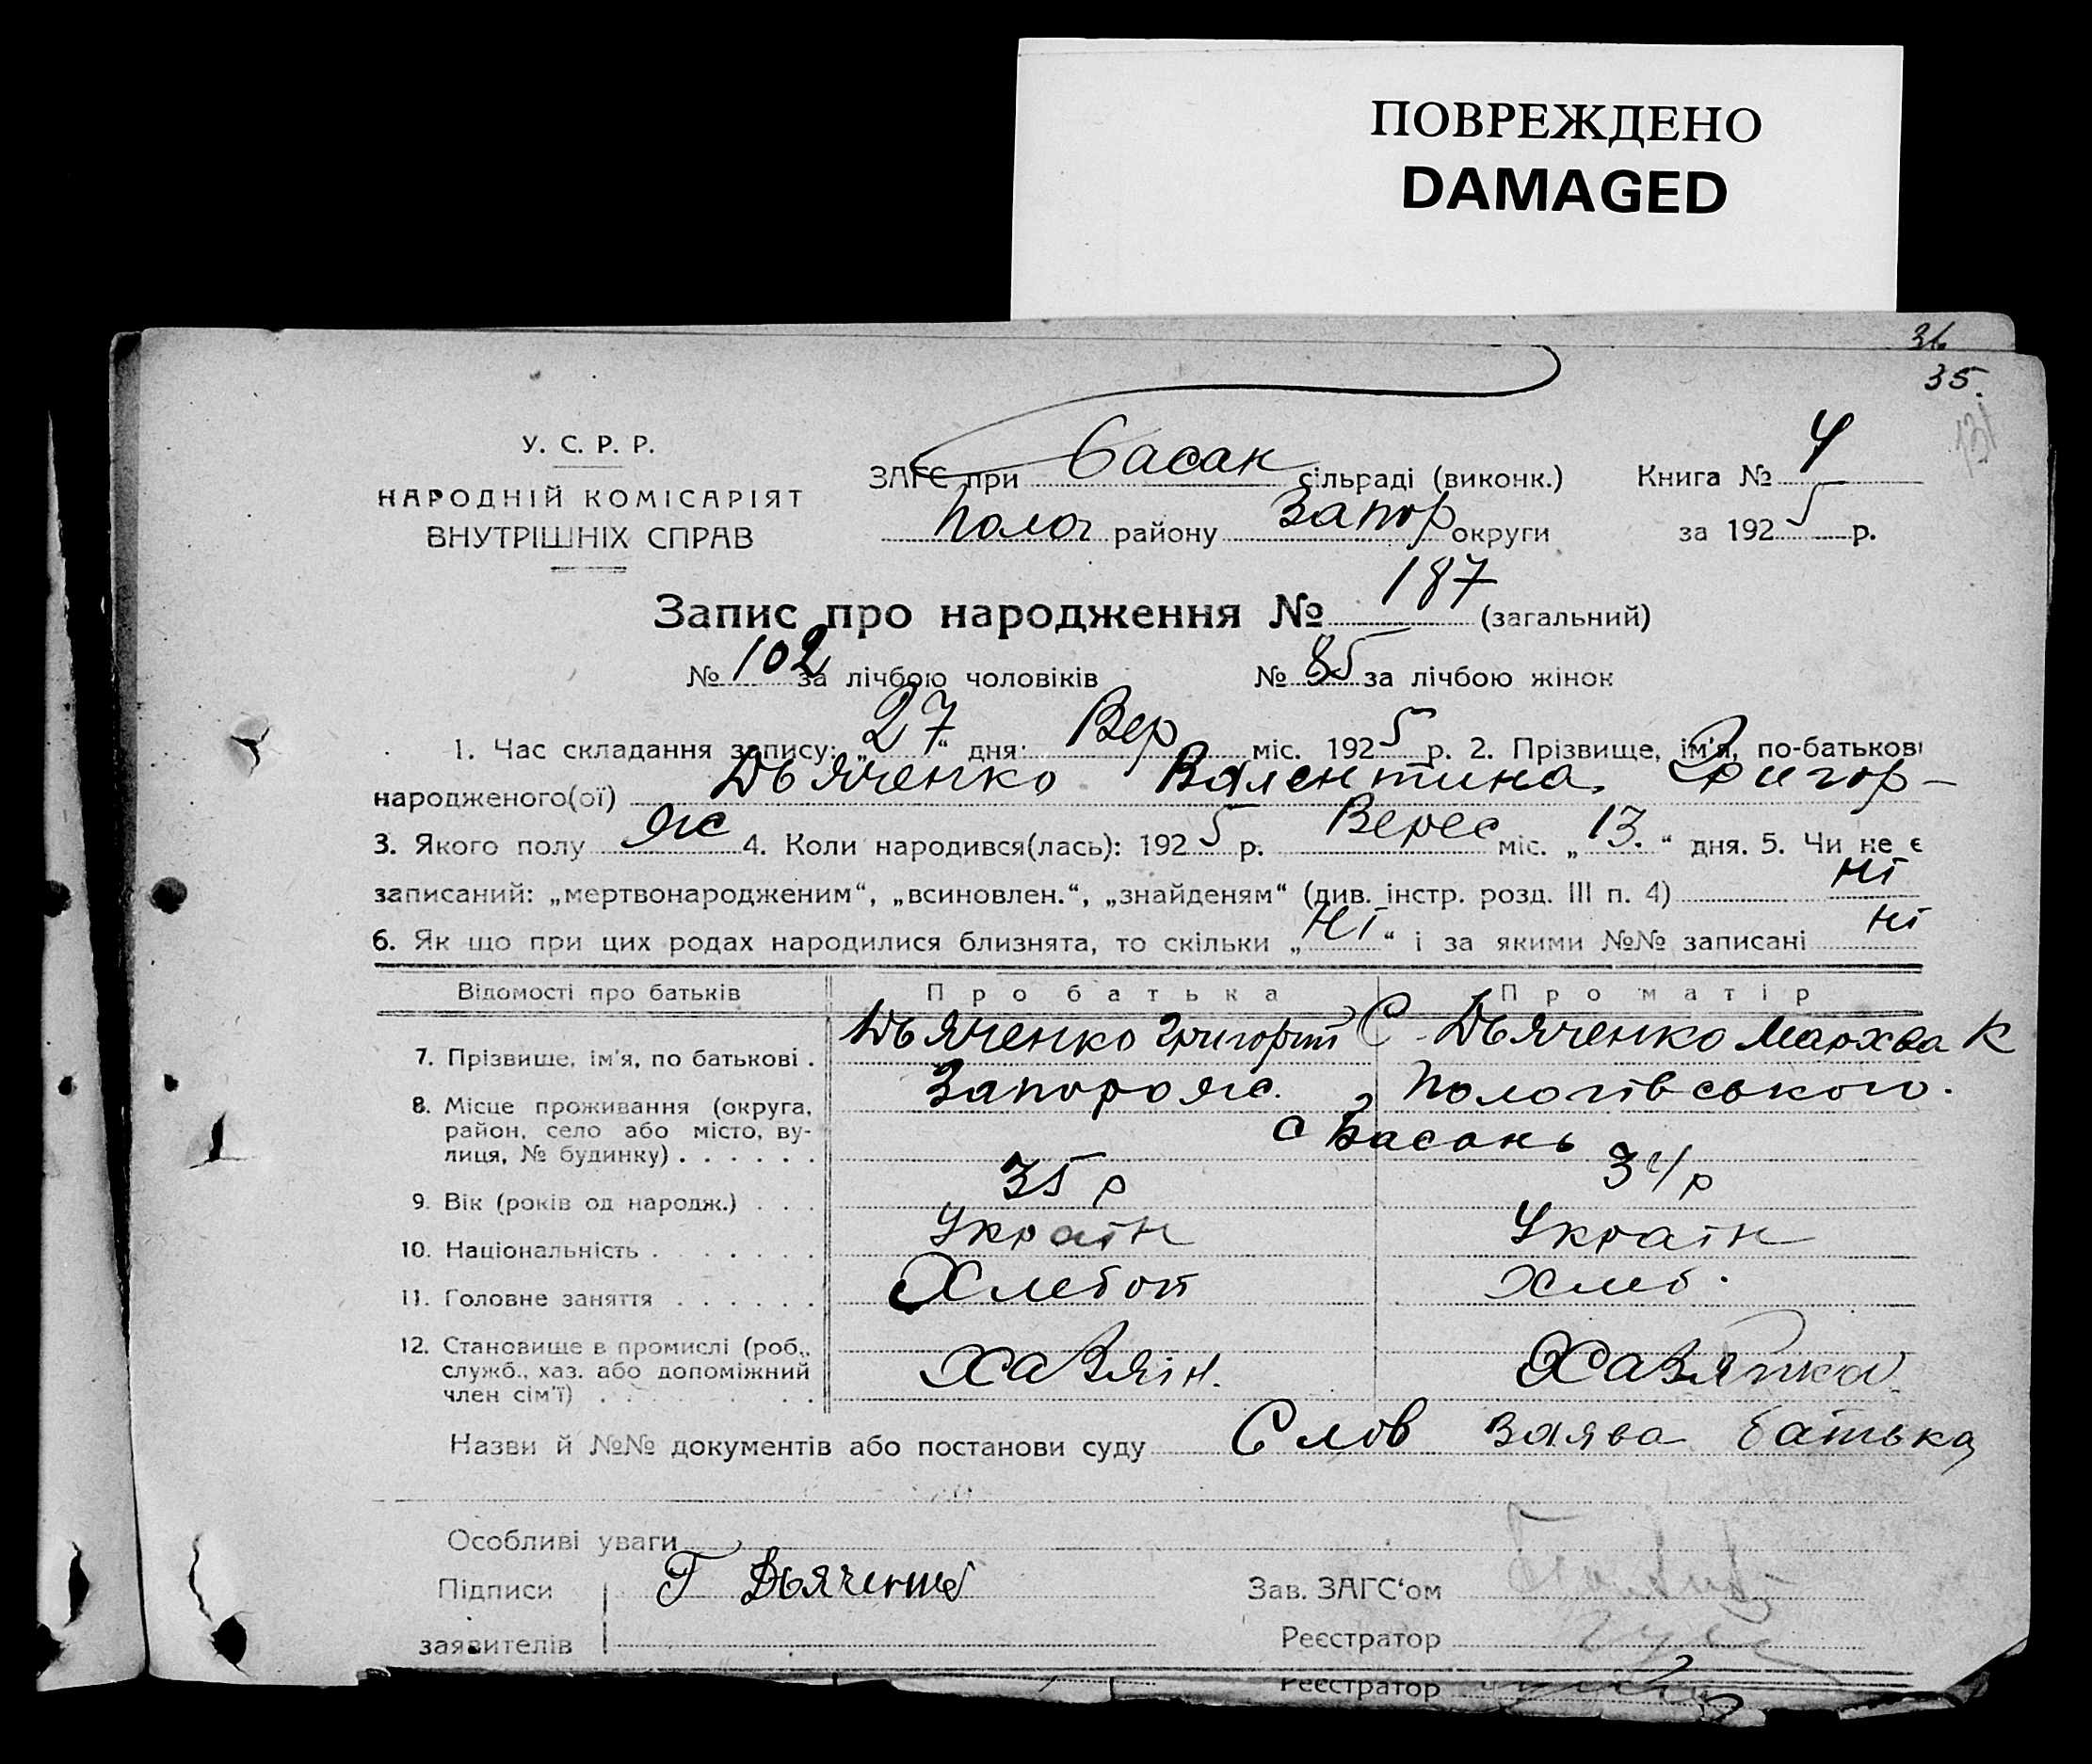 ПОВРЕЖДЕНО
DAMAGED
36
35.
131
У. С. Р. Р.
НАРОДНІЙ КОМІСАРІЯТ
ВНУТРІШНІХ СПРАВ
ЗАГС при Басан сільраді (виконк.) Книга № 4
Полог району Запор округи за 1925 р.
Запис про народження № 187 (загальний)
№ 102 за лічбою чоловіків № 85 за лічбою жінок
1. Час складання запису: „27“ дня: Вер міс. 1925 р. 2. Прізвище, ім'я, по-батькові
народженого(ої) Дьяченко Валентина Григор-
3. Якого полу ж 4. Коли народився(лась): 1925 р. Верес міс. „13.“ дня. 5. Чи не є
записаний: „мертвонародженим“, „всиновлен.“, „знайденям“ (див. інстр. розд. III п. 4) Ні
6. Як що при цих родах народилися близнята, то скільки „Ні“ і за якими №№ записані Ні
Відомості про батьків Про батька Про матір
7. Прізвище, ім'я, по батькові . Дьяченко Григорий С Дьяченко Мархва К
8. Місце проживання (округа, район, село або місто, вулиця, № будинку) . . . . . . Запорож. Пологівського.
с Басань
9. Вік (років од народж.) . . . 35 р 34 р
10. Національність . . . . . . . Україн Україн
11. Головне заняття . . . . . . Хлебоп хлеб.
12. Становище в промислі (роб., служб., хаз. або допоміжний член сім'ї) . . . хавяін. Хавяйка
Назви й №№ документів або постанови суду Слов заява батька
Особливі уваги
Підписи Г Дьяченко Зав. ЗАГС'ом
заявителів Реєстратор
Реєстратор